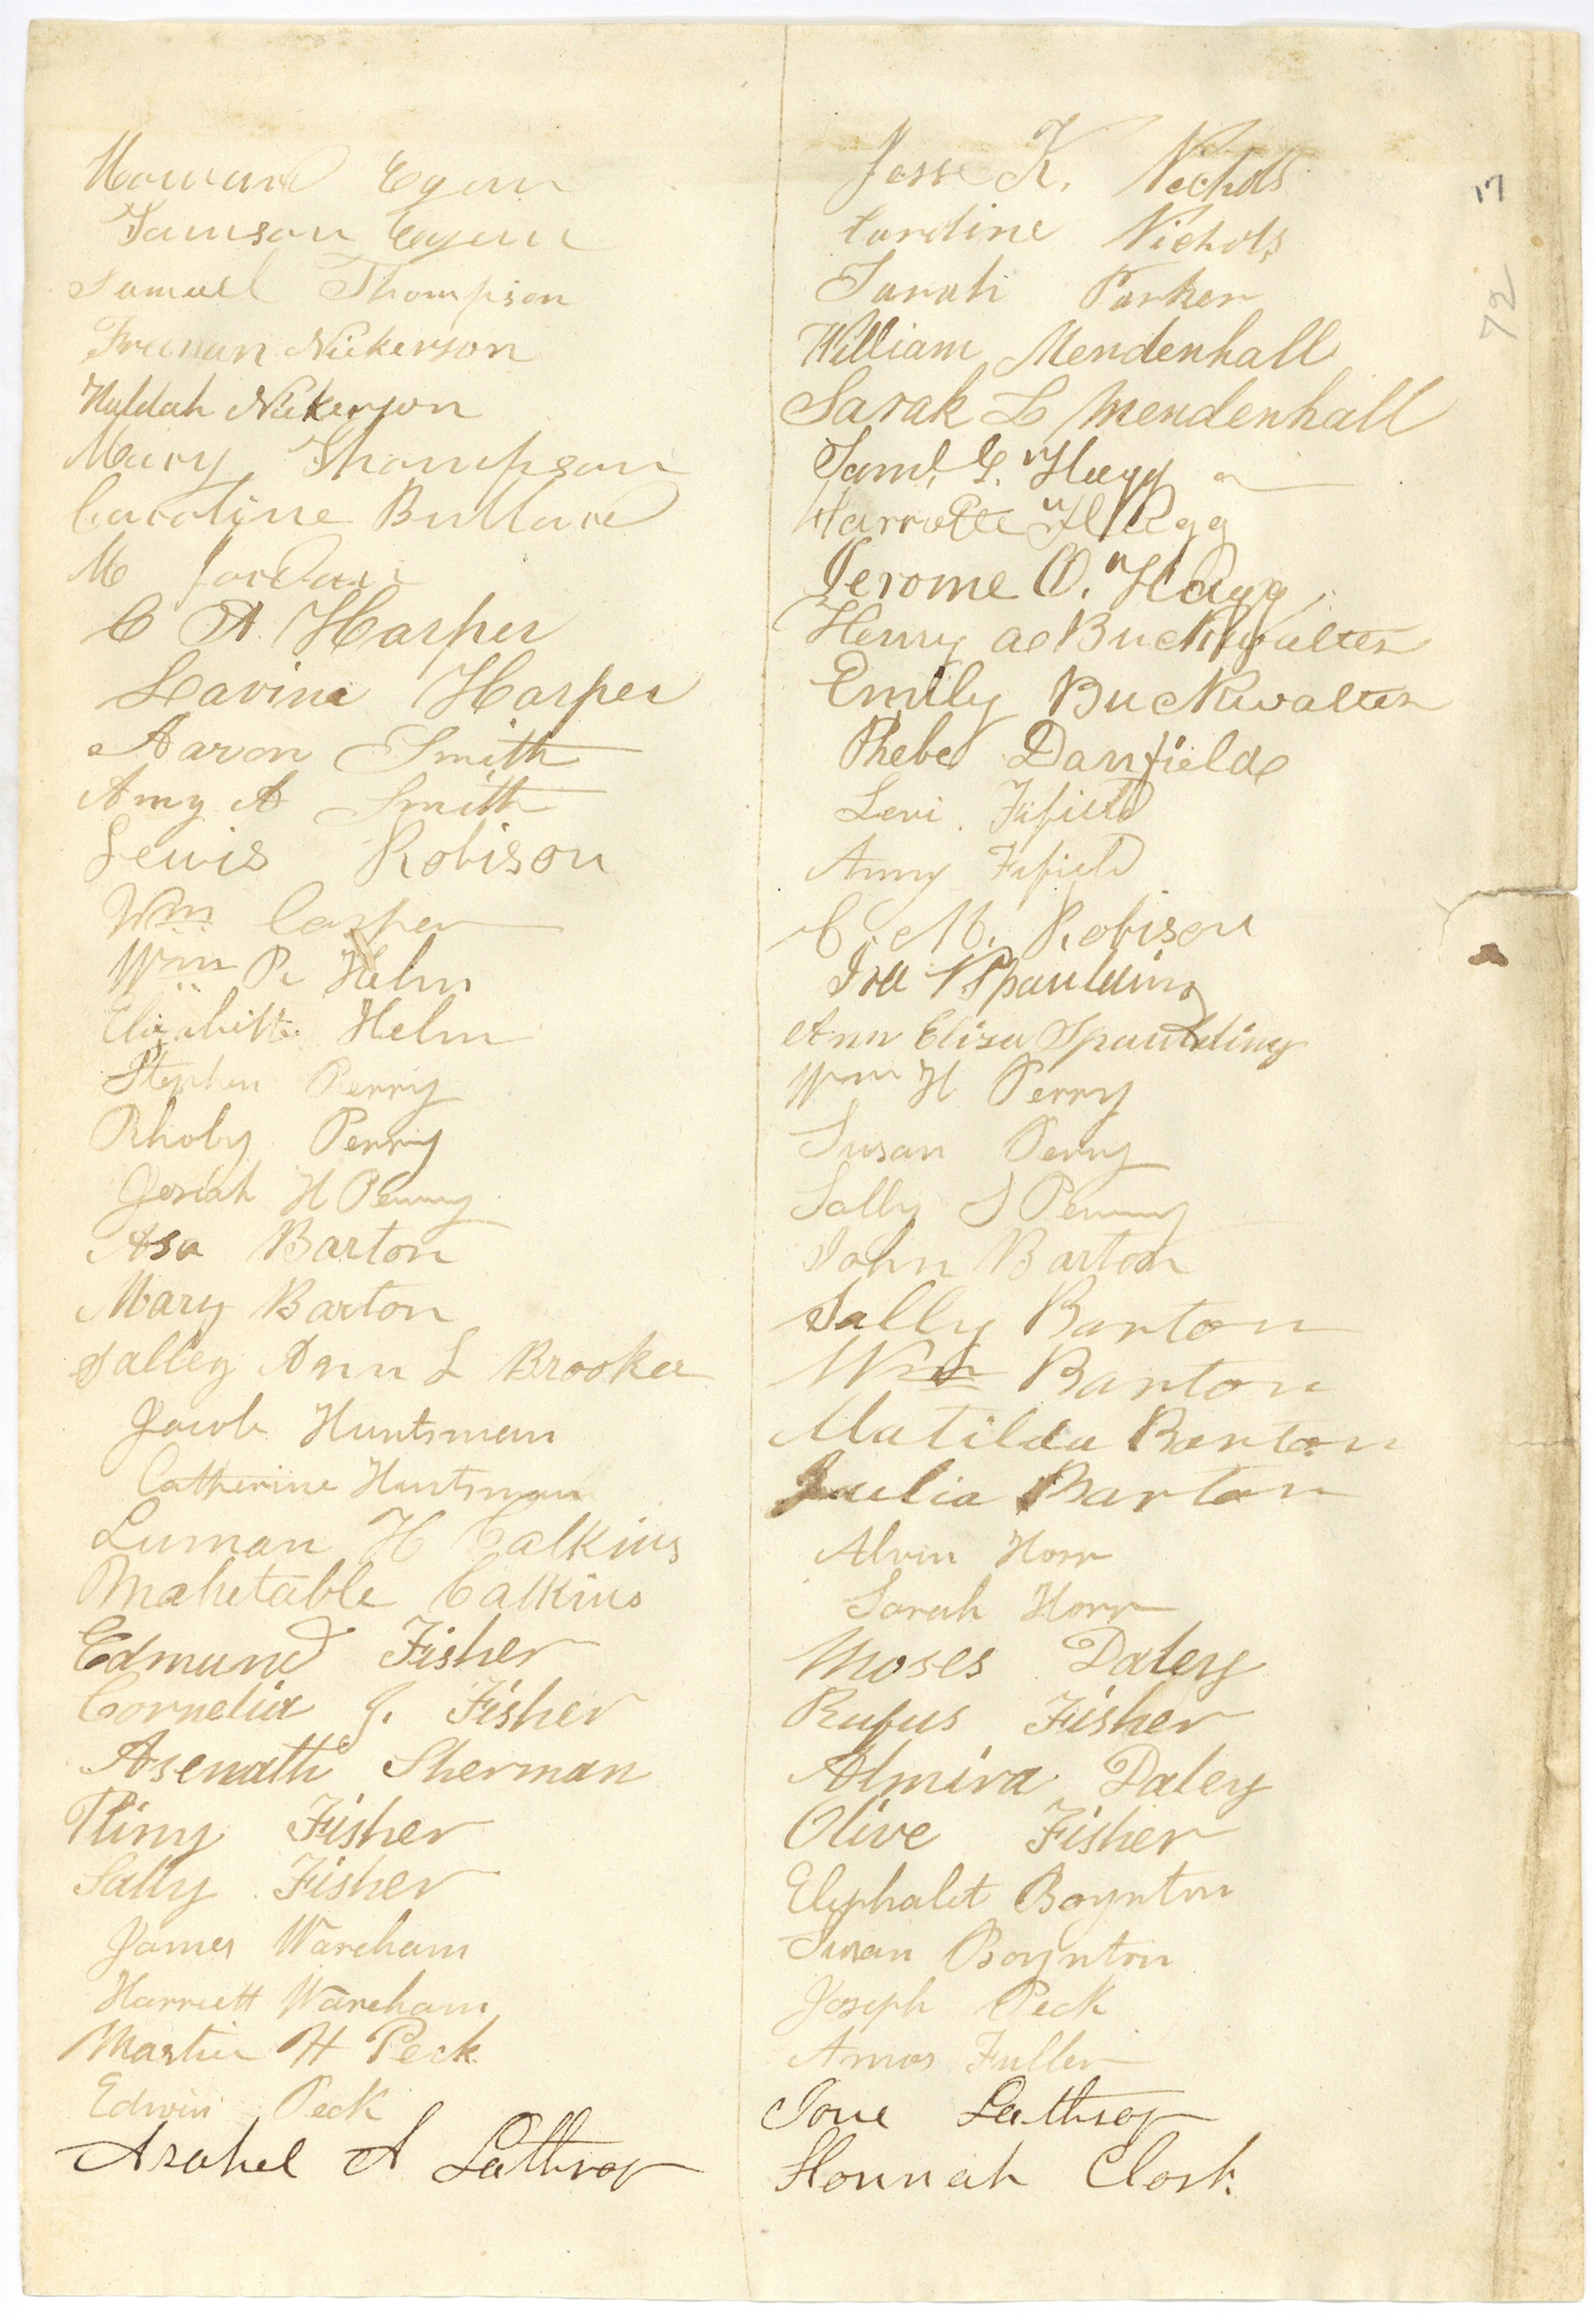 Howard Egan
Tamson Egan
Samuel Thompson
Freeman Nickerson
Huldah Nickerson
Mary Thompson
Caroline Bullard
M Jordan
C A Harper
Lavina Harper
Aaron Smith
Amy A Smith
Lewis Robison
Wm Casper
Wm P. Helm
Elizabeth Helm
Stephen Perry
Rhoby Perry
Josiah H Perry
Asa Barton
Mary Barton
Salley Ann L Brooker
Jacob Huntsman
Catherine Huntsman
Luman H Calkins
Mahetable Calkins
Edmund Fisher
Cornelia J. Fisher
Asenath Sherman
Pliny Fisher
Sally Fisher
James Wareham
Harriett Wareham
Martin H Peck
Edwin Peck
Asahel A Lathrop
Jesse K. Nichols
Caroline Nichols
Sarah Parker
William Mendenhall
Sarah L Mendenhall
Saml. G. Hagg
Harriette Hagg
Jerome O. Hagg
Henry Buckwalter
Emily Buckwalter
Phebe Danfield
Levi Fifield
Anny Fifield
C. M. Robison
Ira Spaulding
Ann Eliza Spaulding
Wm H Perry
Susan Perry
Sally S Perry
John Barton
Sally Barton
Wm Barton
Matilda Barton
Julia Barton
Alvin Horr
Sarah Horr
Moses Daley
Rufus Fisher
Almira Daley
Olive Fisher
Eliphalet Boynton
Susan Boynton
Joseph Peck
Amos Fuller
Jane Lathrop
Hannah Clark
17
72